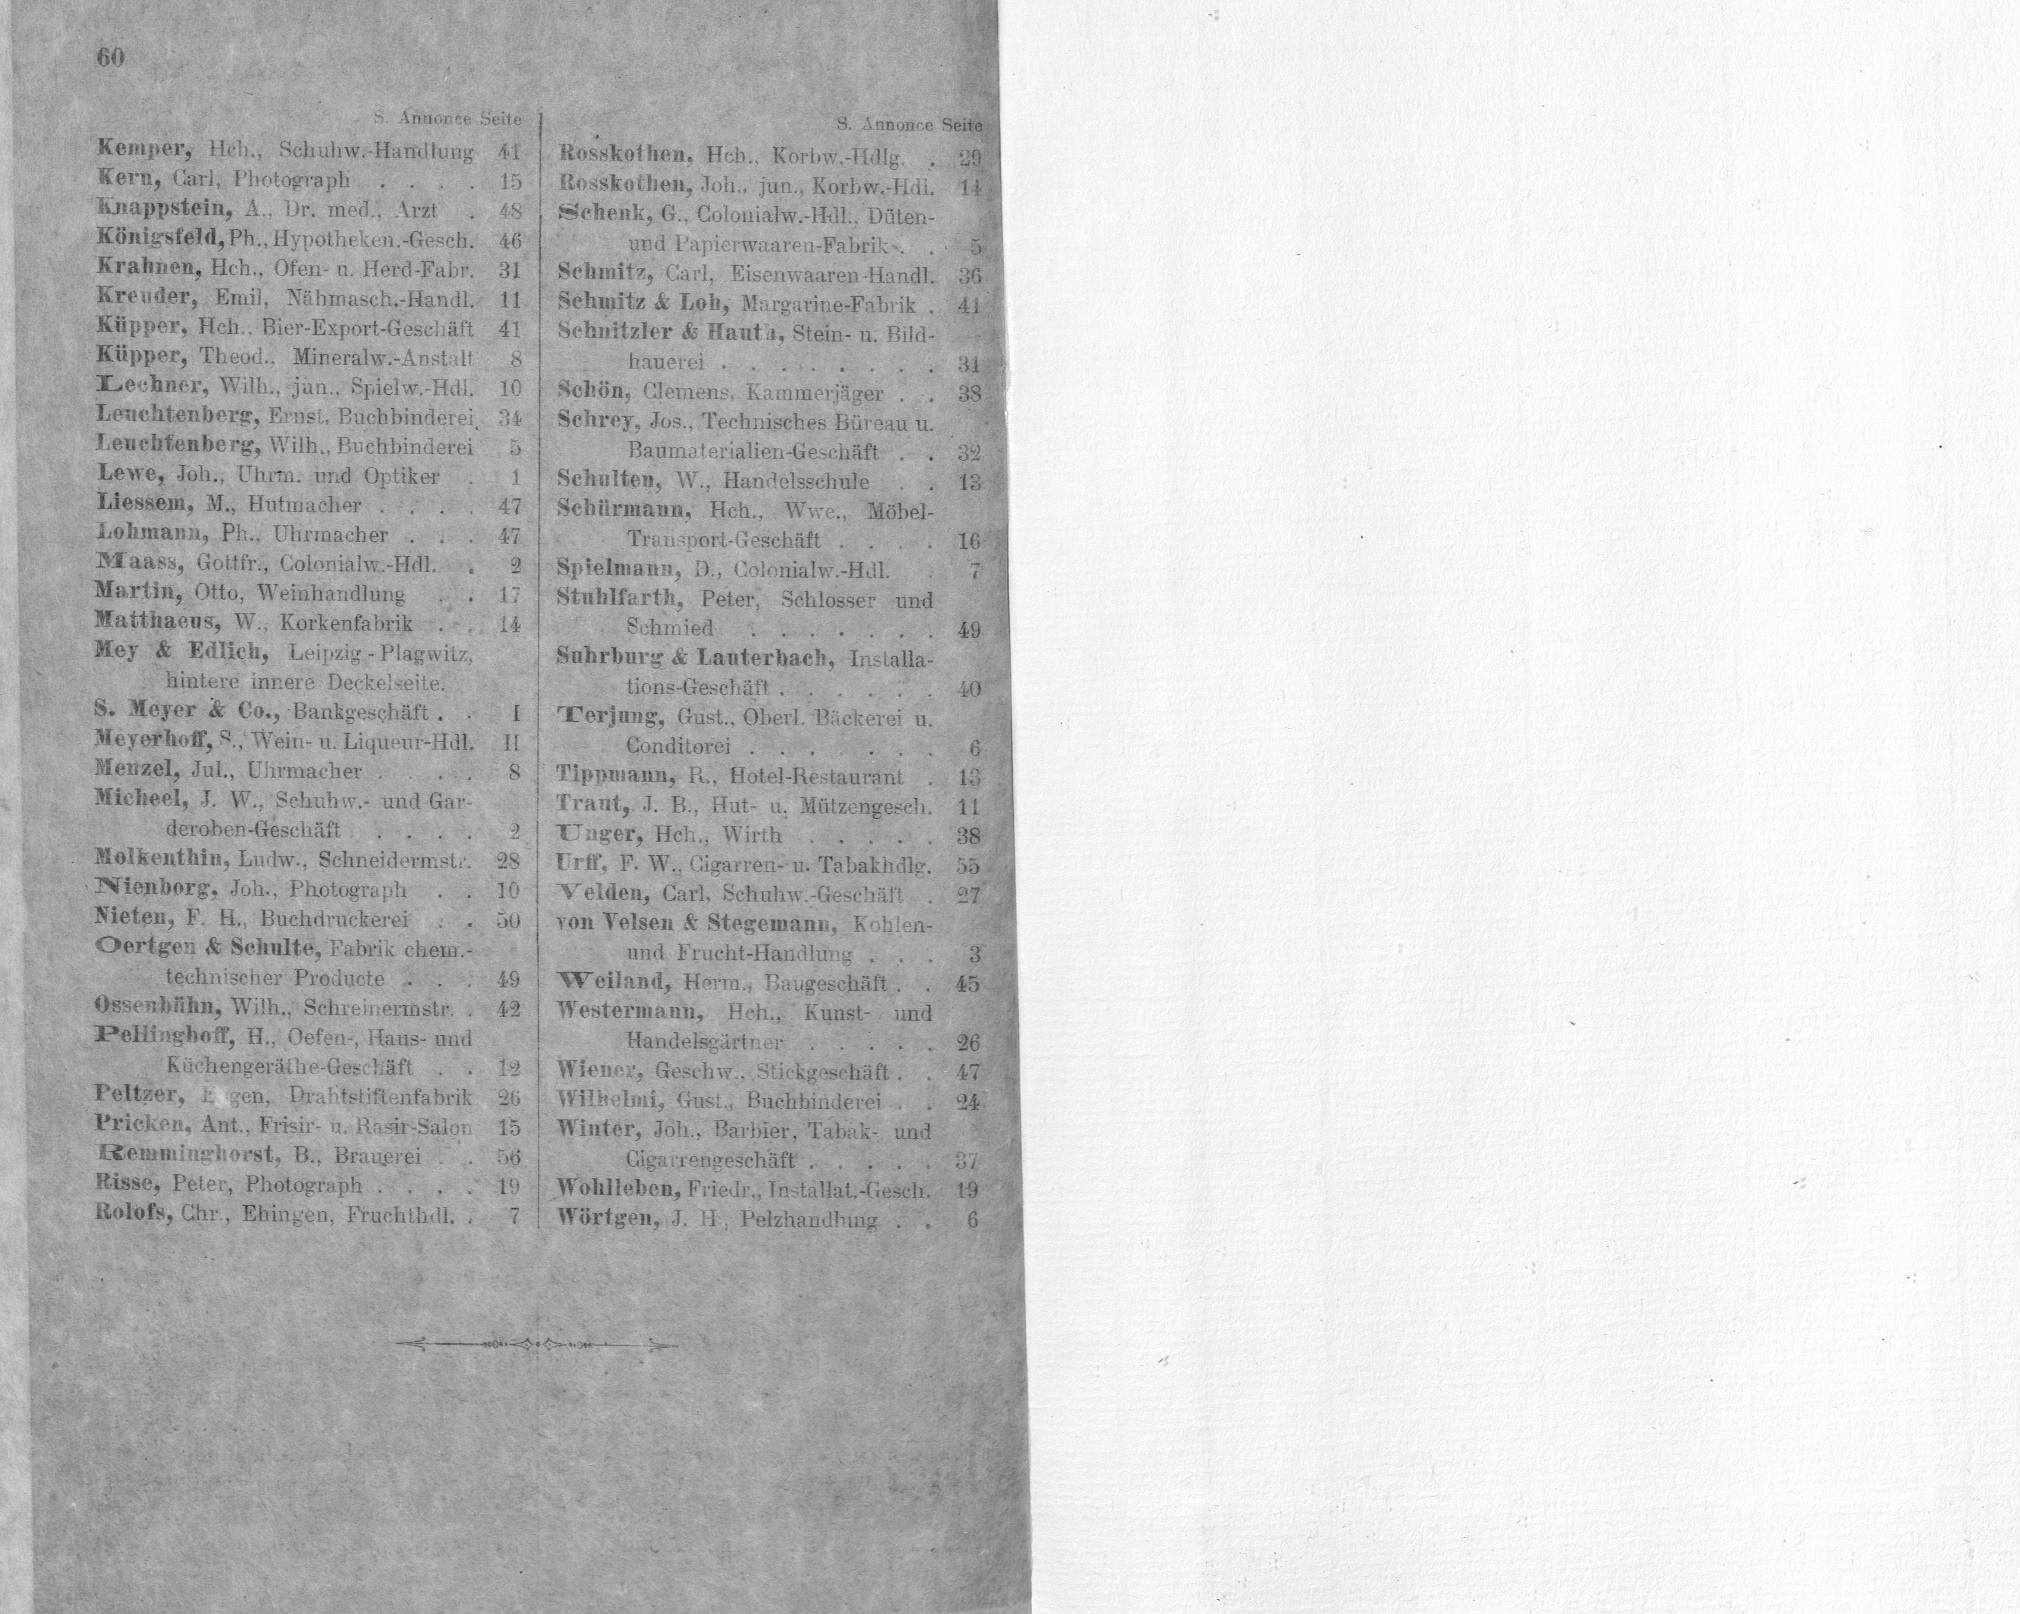 60
S. Annonce Seite
Kemper, Hch., Schuhw.-Handlung 41
Kern, Carl, Photograph . . . . 15
Knappstein, A., Dr. med., Arzt . 48
Königsfeld, Ph., Hypotheken.-Gesch. 46
Krahnen, Hch., Ofen- u. Herd-Fabr. 31
Kreuder, Emil, Nähmasch.-Handl. 11
Küpper, Hch., Bier-Export-Geschäft 41
Küpper, Theod., Mineralw.-Anstalt 8
Lechner, Wilh., jun., Spielw.-Hdl. 10
Leuchtenberg, Ernst, Buchbinderei 34
Leuchtenberg, Wilh., Buchbinderei 5
Lewe, Joh., Uhrm. und Optiker . 1
Liessem, M., Hutmacher . . . . 47
Lohmann, Ph., Uhrmacher . . . 47
Maass, Gottfr., Colonialw.-Hdl. . 2
Martin, Otto, Weinhandlung . . 17
Matthaeus, W., Korkenfabrik . . 14
Mey & Edlich, Leipzig - Plagwitz,
hintere innere Deckelseite.
S. Meyer & Co., Bankgeschäft . . I
Meyerhoff, S., Wein- u. Liqueur-Hdl. II
Menzel, Jul., Uhrmacher . . . . 8
Micheel, J. W., Schuhw.- und Gar-
deroben-Geschäft . . . . 2
Molkenthin, Ludw., Schneidermstr. 28
Nienborg, Joh., Photograph . . 10
Nieten, F. H., Buchdruckerei . . 50
Oertgen & Schulte, Fabrik chem.-
technischer Producte . . . 49
Ossenbühn, Wilh., Schreinermstr. . 42
Pellinghoff, H., Oefen-, Haus- und
Küchengeräthe-Geschäft . . 12
Peltzer, Eugen, Drahtstiftenfabrik 26
Pricken, Ant., Frisir- u. Rasir-Salon 15
Remminghorst, B., Brauerei . . 56
Risse, Peter, Photograph . . . . 19
Rolofs, Chr., Ehingen, Fruchthdl. . 7
S. Annonce Seite
Rosskothen, Hch., Korbw.-Hdlg. . 29
Rosskothen, Joh., jun., Korbw.-Hdl. 14
Schenk, G., Colonialw.-Hdl., Düten-
und Papierwaaren-Fabrik . . 5
Schmitz, Carl, Eisenwaaren-Handl. 36
Schmitz & Loh, Margarine-Fabrik . 41
Schnitzler & Hauth, Stein- u. Bild-
hauerei . . . . . . . . 31
Schön, Clemens, Kammerjäger . . 38
Schrey, Jos., Technisches Büreau u.
Baumaterialien-Geschäft . . 32
Schulten, W., Handelsschule . . 13
Schürmann, Hch., Wwe., Möbel-
Transport-Geschäft . . . . 16
Spielmann, D., Colonialw.-Hdl. . 7
Stuhlfarth, Peter, Schlosser und
Schmied . . . . . . . 49
Suhrburg & Lauterbach, Installa-
tions-Geschäft . . . . . . 40
Terjung, Gust., Oberl. Bäckerei u.
Conditorei . . . . . . . 6
Tippmann, R., Hotel-Restaurant . 13
Traut, J. B., Hut- u. Mützengesch. 11
Unger, Hch., Wirth . . . . . 38
Urff, F. W., Cigarren- u. Tabakhdlg. 55
Velden, Carl, Schuhw.-Geschäft . 27
von Velsen & Stegemann, Kohlen-
und Frucht-Handlung . . . 3
Weiland, Herm., Baugeschäft . . 45
Westermann, Hch., Kunst- und
Handelsgärtner . . . . . 26
Wiener, Geschw., Stickgeschäft . . 47
Wilhelmi, Gust., Buchbinderei . . 24
Winter, Joh., Barbier, Tabak- und
Cigarrengeschäft . . . . . 37
Wohlleben, Friedr., Installat.-Gesch. 19
Wörtgen, J. H., Pelzhandlung . . 6